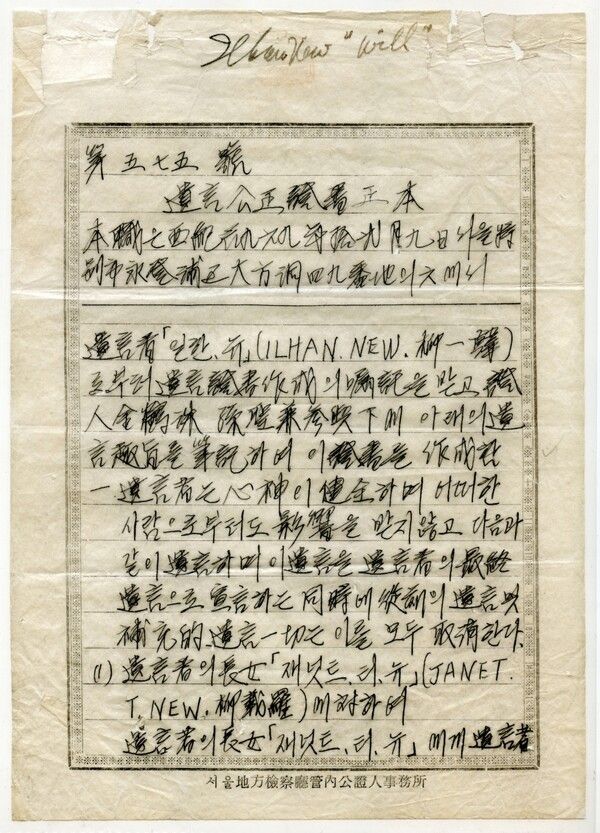 Ilhan New "Will"
第五七五號
遺言公正證書正本
本職은 西紀 一九六九年 拾貳月 九日 서울特
別市 永登浦區 大方洞 四九番地의 六에서
遺言者「일한.뉴」(ILHAN.NEW.柳一韓)
로부터 遺言證書作成의 囑託을 받고 證
人 金鶴姝 孫 參與下에 아래의 遺
言趣旨를 筆記하여 이 證書를 作成한
一 遺言者는 心神이 健全하며 어떠한
사람으로부터도 影響을 받지 않고 다음과
같이 遺言하며 이 遺言을 遺言者의 最終
遺言으로 宣言하는 同時에 從前의 遺言 및
補充的 遺言 一切는 이를 모두 取消한다.
(1) 遺言者의 長女「재닛트.티.뉴」(JANET.
T.NEW.柳載羅)에 對하여
遺言者의 長女「재닛트.티.뉴」에게 遺言者
서울地方檢察廳管內公證人事務所